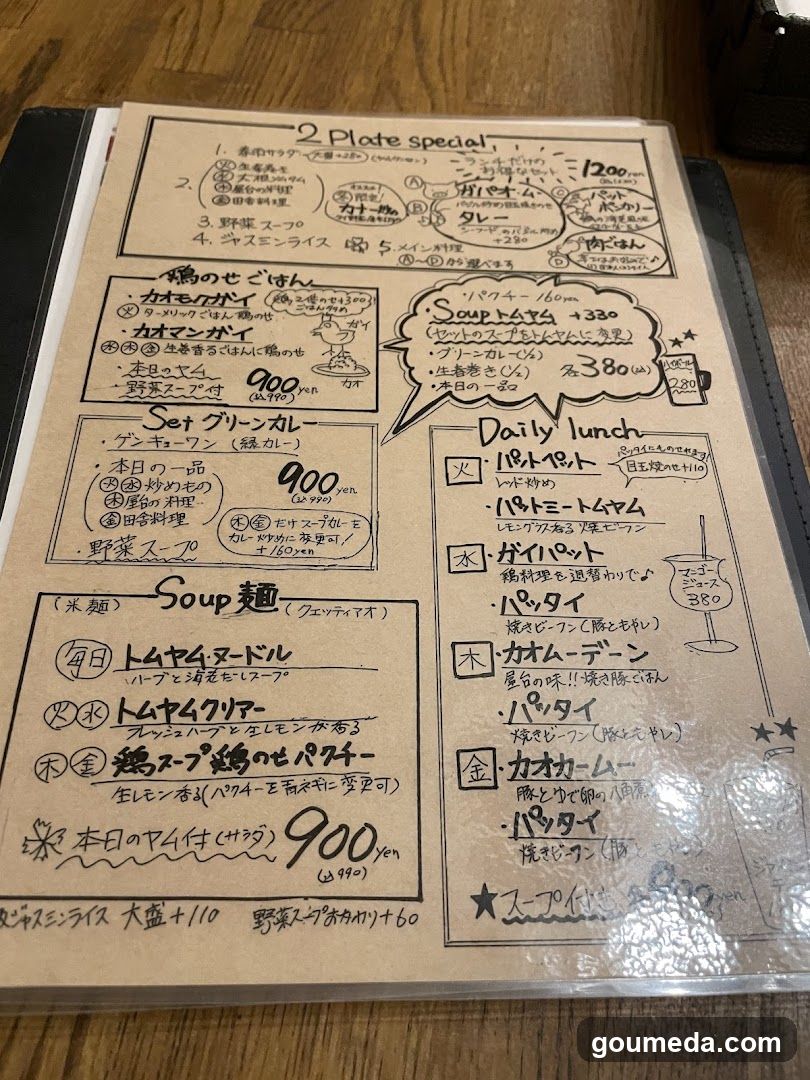 2 Plate special
1. 春雨サラダ 大盛+280 (ヤムウンセン)
ランチだけの
お得なセット
1200yen
2.
火 生春巻き
木 屋台の料理
金 田舎料理
オススメ!
限定
3. 野菜スープ
4. ジャスミンライス
5. メイン料理
Ⓐ〜Ⓓから選べます
Ⓐ ガパオ・ム
Ⓑ タレー
シーフードのバジル炒め
+280
Ⓒ パット
ポンカリー
Ⓓ 肉ごはん
鶏のせごはん
・カオモックガイ
火 ターメリックごはん 鶏のせ
鶏2倍のせ+300
・カオマンガイ
水 木 金 生姜香るごはんに鶏のせ
ガイ
カオ
・本日のヤム
・野菜スープ付
900yen
(込990)
・パクチー 160yen
・Soupトムヤム +330
(セットのスープをトムヤムに変更)
・グリーンカレー(1/2)
・生春巻き(1/2)
・本日の一品
各380(込)
ハイボール
280
Set グリーンカレー
・ゲンキョーワン (緑カレー)
・本日の一品
火 水 炒めもの
木 屋台の料理
金 田舎料理
・野菜スープ
900yen
(込990)
木 金 だけスープカレーを
カレー炒めに変更可!
+160yen
Daily lunch
火 ・パットペット
レッド炒め
パッタイにものせれます
目玉焼のせ+110
・パットミートムヤム
レモングラス香る焼ビーフン
水 ・ガイパット
鶏料理を週替わりで♪
・パッタイ
焼きビーフン(豚ともやし)
マンゴー
ジュース
380
木 ・カオムーデーン
屋台の味!!焼き豚ごはん
・パッタイ
焼きビーフン(豚ともやし)
金 ・カオカームー
豚とゆで卵の八角煮
・パッタイ
焼きビーフン(豚ともやし)
★スープ付き 各900yen
(米麺) Soup麺 (クェッティアオ)
毎日 トムヤム・ヌードル
ハーブと海老だしスープ
火 水 トムヤムクリアー
フレッシュハーブと生レモンが香る
木 金 鶏スープ鶏のせパクチー
生レモン香る(パクチーを青ネギに変更可)
本日のヤム付(サラダ) 900yen
(込990)
ジャスミンライス 大盛+110
野菜スープおかわり+60
goumeda.com